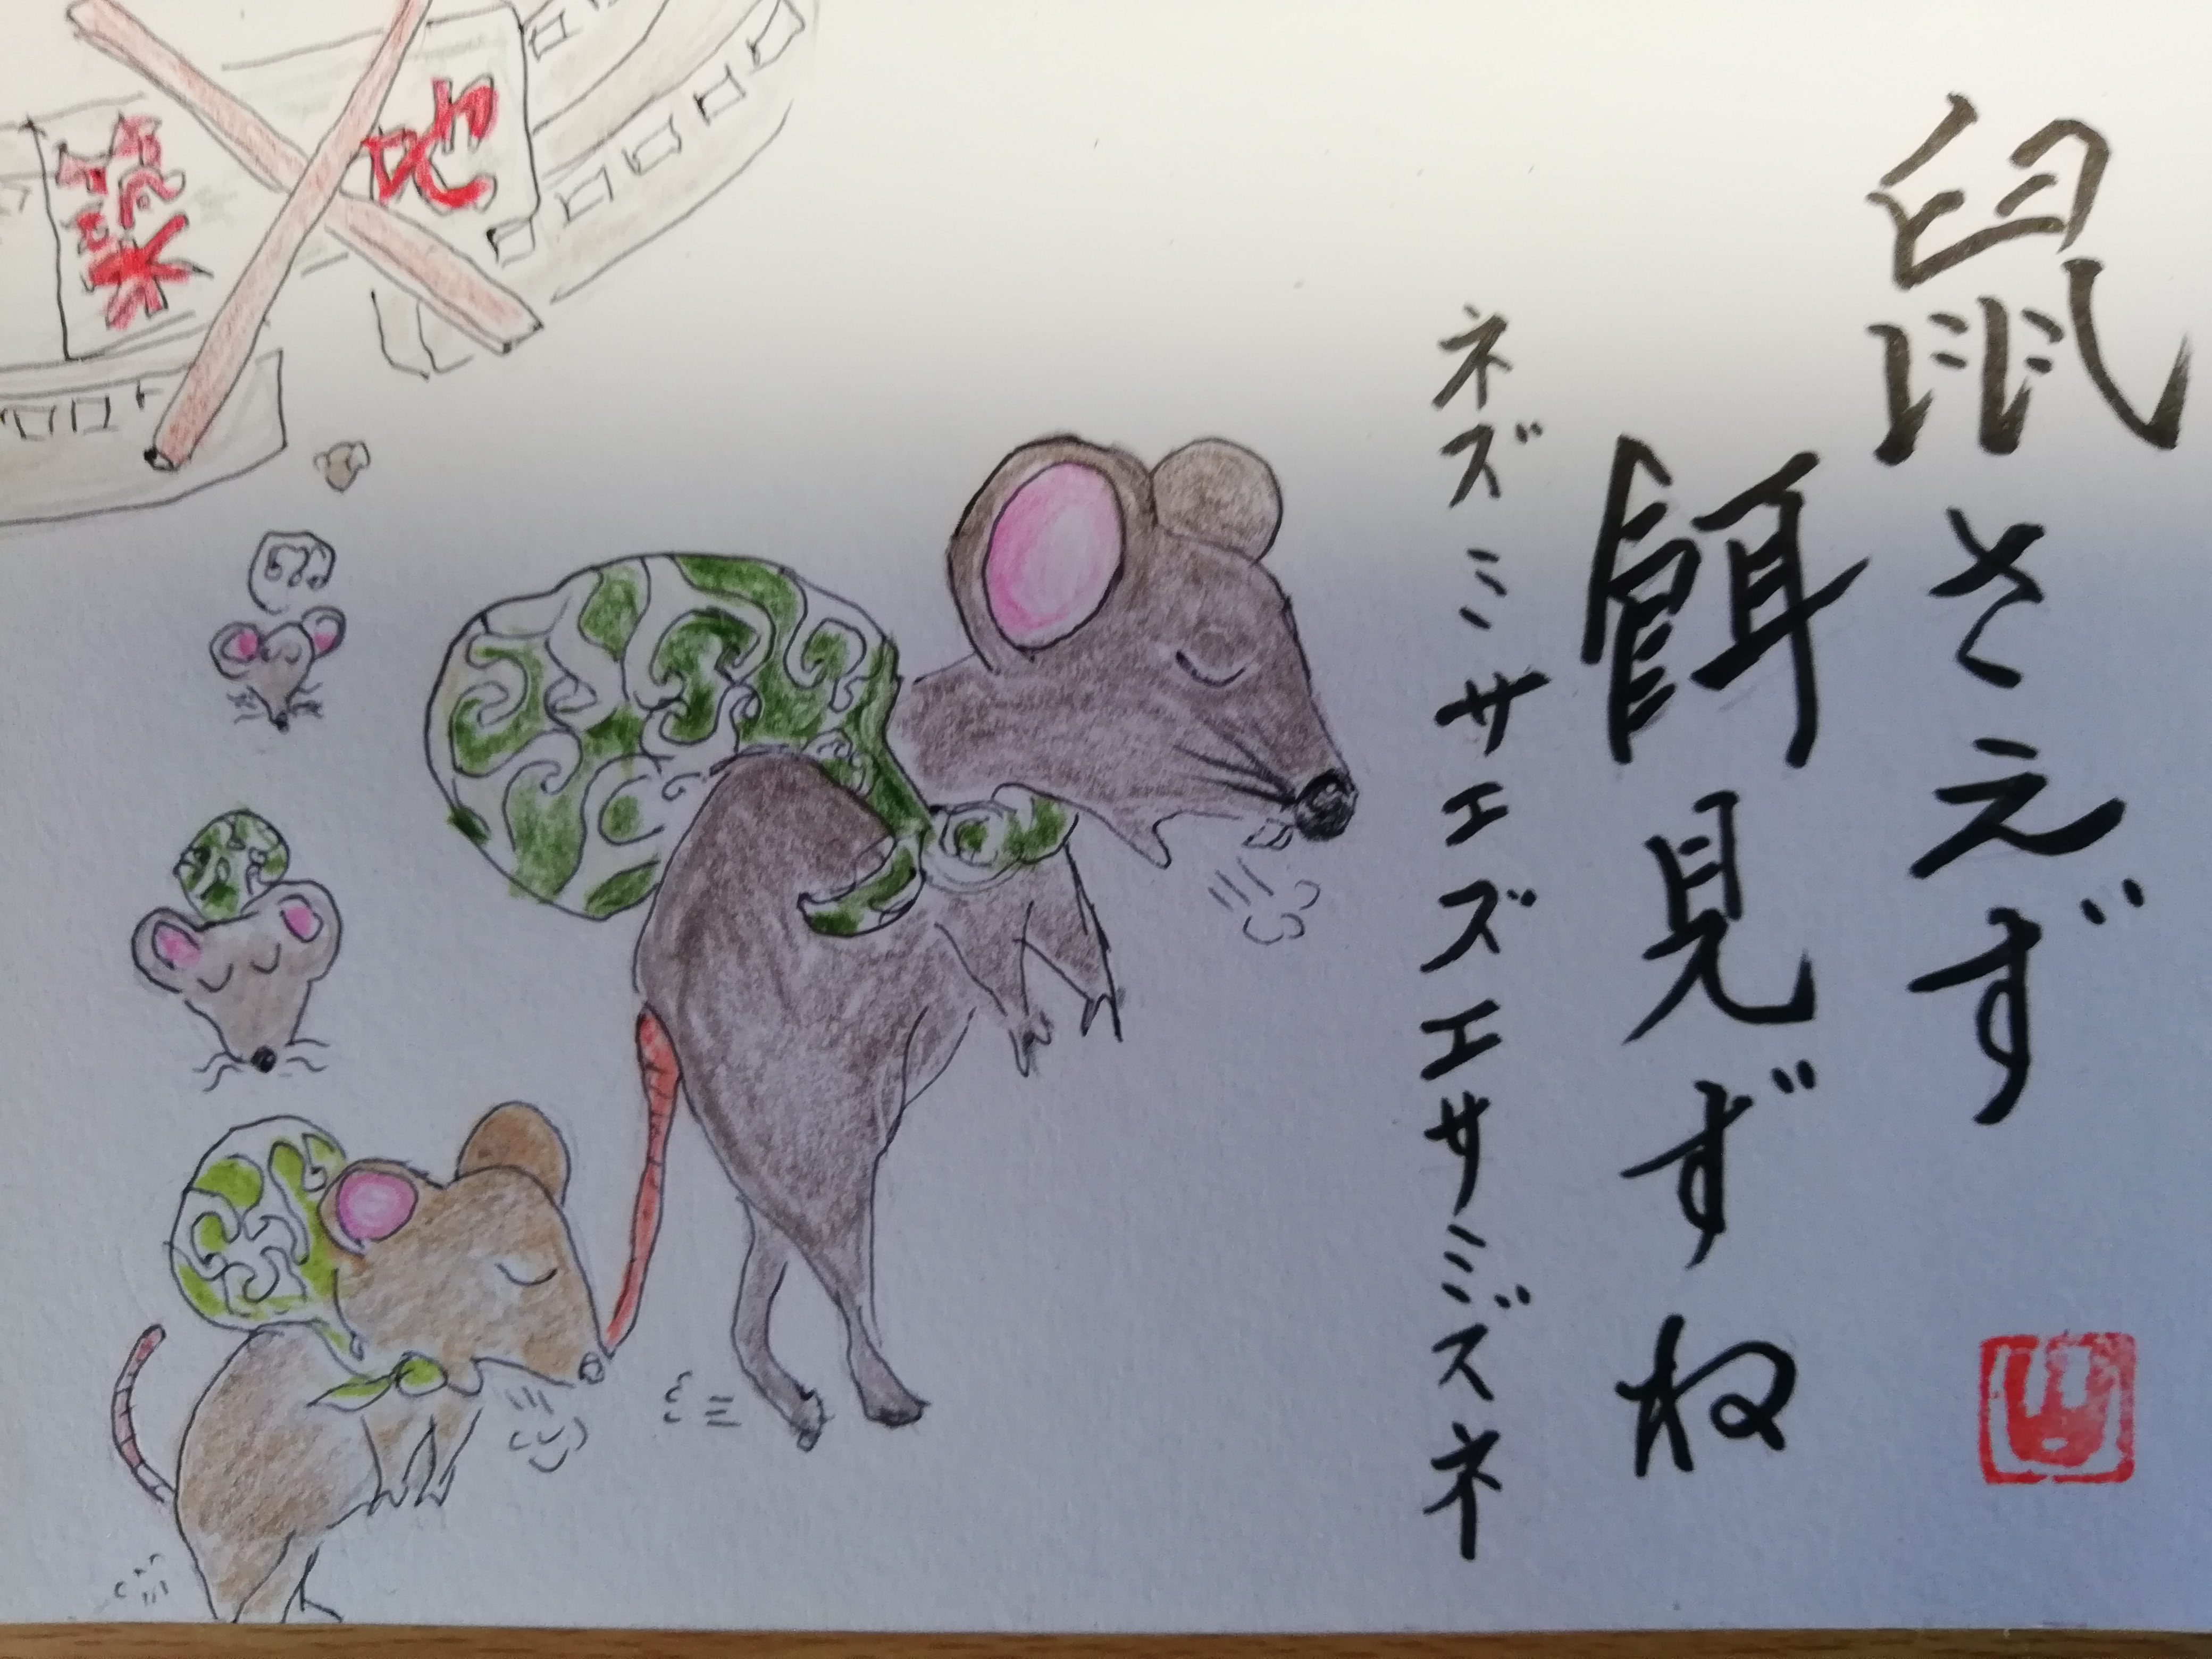 鼠さえず
餌見ずね
ネズミサエズエサミズネ
山
築地